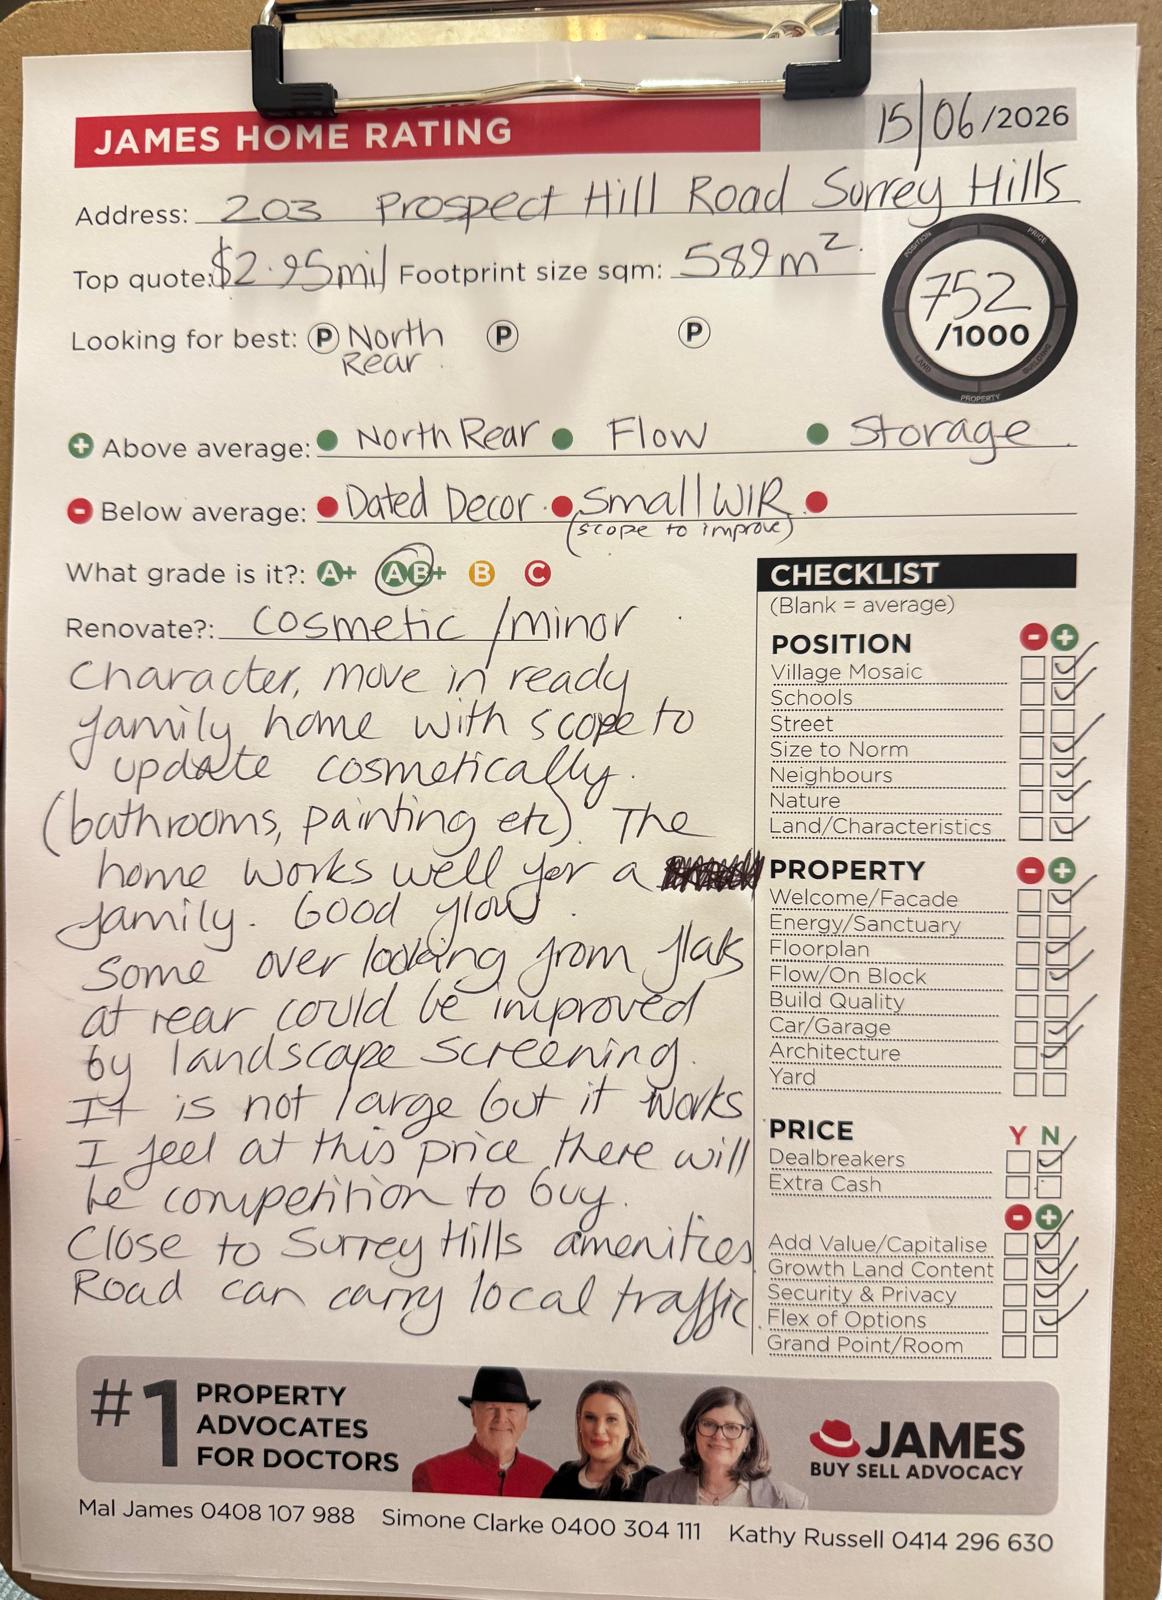 JAMES HOME RATING 15/06/2026
Address: 203 Prospect Hill Road Surrey Hills
Top quote: $2.95mil Footprint size sqm: 589m²
POSITION PRICE BUILDING PROPERTY LAND
752
/1000
Looking for best: P North Rear P P
+ Above average: North Rear Flow Storage
- Below average: Dated Decor. Small WIR
(scope to improve)
What grade is it?: A+ AB+ B C
Renovate?: Cosmetic / minor
Character, move in ready
family home with scope to
update cosmetically.
(bathrooms, painting etc). The
home works well for a
family. Good flow.
Some over looking from flats
at rear could be improved
by landscape screening.
It is not large but it works
I feel at this price there will
be competition to buy.
Close to Surrey Hills amenities
Road can carry local traffic.
CHECKLIST
(Blank = average)
POSITION - +
Village Mosaic
Schools
Street
Size to Norm
Neighbours
Nature
Land/Characteristics
PROPERTY - +
Welcome/Facade
Energy/Sanctuary
Floorplan
Flow/On Block
Build Quality
Car/Garage
Architecture
Yard
PRICE Y N
Dealbreakers
Extra Cash
- +
Add Value/Capitalise
Growth Land Content
Security & Privacy
Flex of Options
Grand Point/Room
#1 PROPERTY
ADVOCATES
FOR DOCTORS
JAMES
BUY SELL ADVOCACY
Mal James 0408 107 988 Simone Clarke 0400 304 111 Kathy Russell 0414 296 630